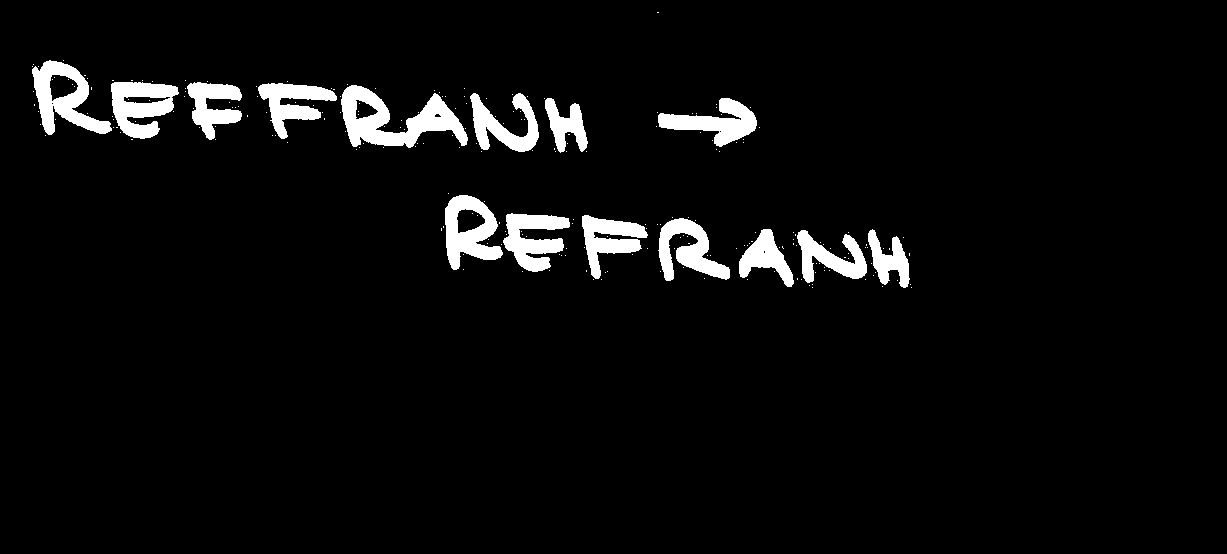 REFFRANH →
REFRANH